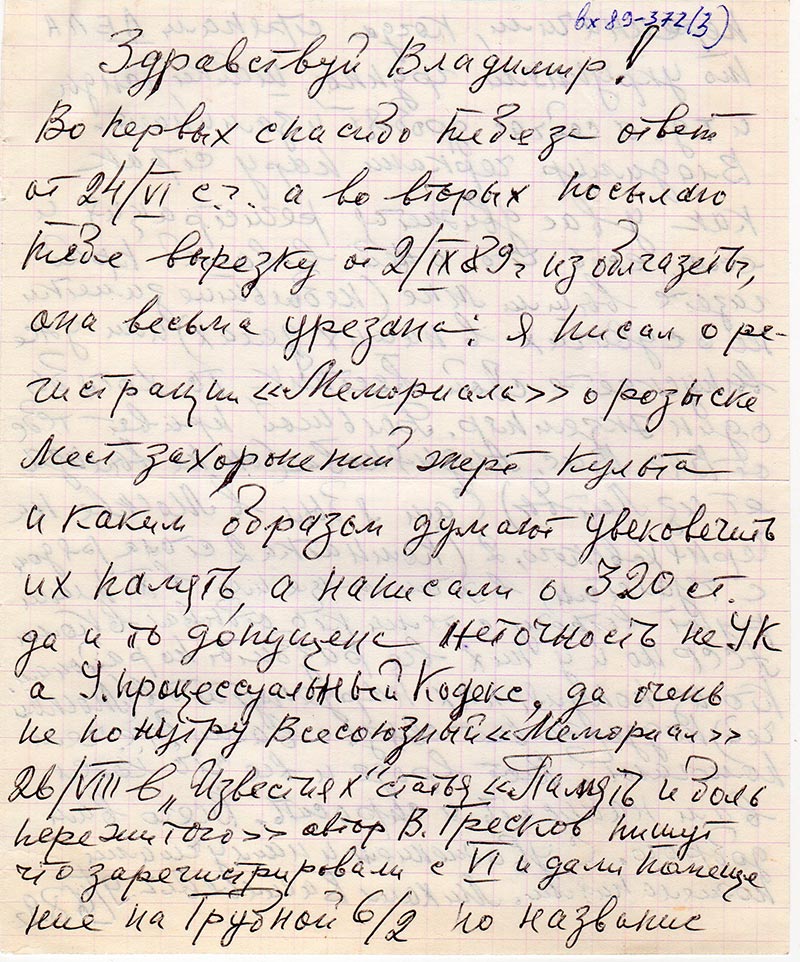 вх 89-372(3)
Здравствуй Владимир!
Во первых спасибо тебе за ответ
от 24/VI с.г. а во вторых посылаю
тебе вырезку от 2/IX 89г из облгазеты,
она весьма урезана: я писал о ре-
гистрации «Мемориала» о розыске
мест захоронений жертв культа
и каким образом думают увековечить
их память, а написали о 320 ст.
да и то допущена неточность не УК
а У.процессуальный Кодекс, да очень
не по нутру Всесоюзный «Мемориал»
26/VIII в „Известиях" статья «Память и боль
пережитого» автор В. Тресков пишут
что зарегистрировали с VI и дали помеще
ние на Трубной 6/2 но название